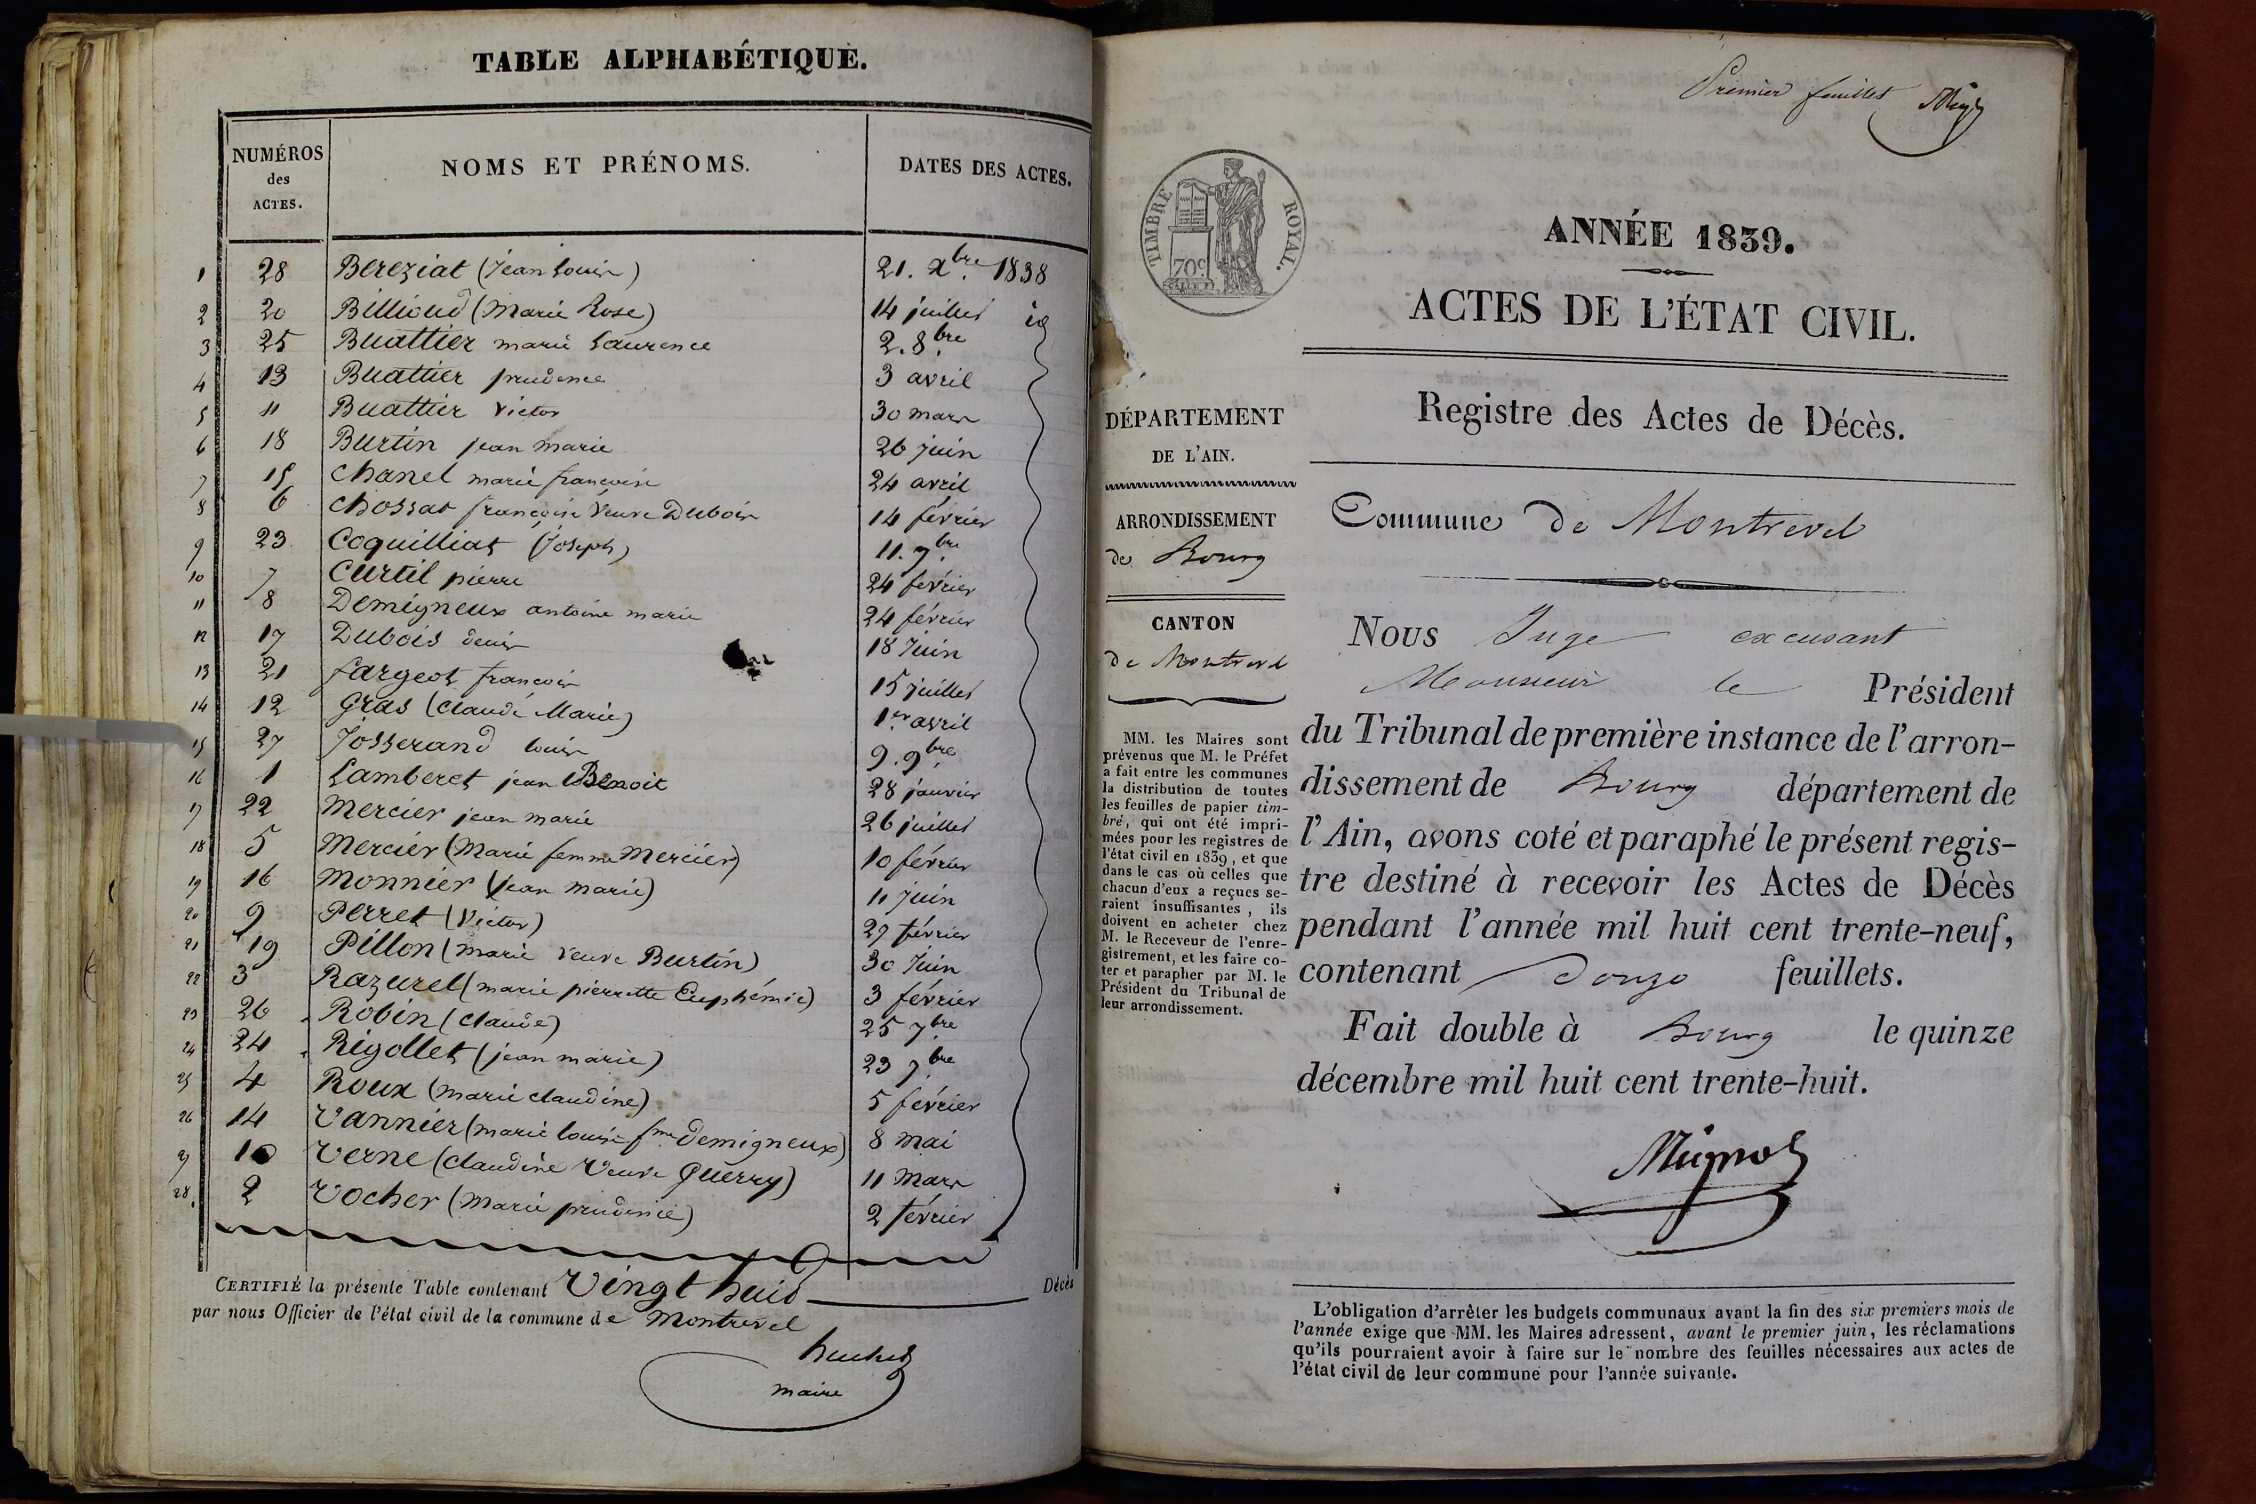 TABLE ALPHABÉTIQUE.
NUMÉROS des ACTES.
NOMS ET PRÉNOMS.
DATES DES ACTES.
1 28 Bereziat (Jean Louis) 21. Xbre 1838
2 20 Billioud (Marie Rose) 14 juillet id
3 25 Buattier marie Laurence 2. 8bre
4 13 Buattier prudence 3 avril
5 11 Buattier Victor 30 mars
6 18 Burtin jean marie 26 juin
7 15 Chanel marie francoise 24 avril
8 6 Chossat françoise Veuve Dubois 14 février
9 23 Coquilliat (Joseph) 11. 7bre
10 7 Curtil pierre 24 février
11 8 Demigneux antoine marie 24 février
12 17 Dubois denis 18 Juin
13 21 fargeot francois 15 juillet
14 12 Gras (Claude Marie) 1er avril
15 27 Josserand louis 9. 9bre
16 1 Lamberet jean Benoit 28 janvier
17 22 Mercier jean marie 26 juillet
18 5 Mercier (Marie femme Mercier) 10 février
19 16 Monnier (Jean Marie) 11 juin
20 9 Perret (Victor) 27 février
21 19 Pillon (marie veuve Burtin) 30 Juin
22 3 Razurel (marie pierrette Euphémie) 3 février
23 26 Robin (Claude) 25 7bre
24 24 Rigollet (jean marie) 23 7bre
25 4 Roux (marie claudine) 5 février
26 14 Vannier (marie louise fme Demigneux) 8 mai
27 10 Verne (Claudine Veuve Querry) 11 Mars
28 2 Vocher (Marie prudence) 2 février
CERTIFIÉ la présente Table contenant Vingt huit Décès
par nous Officier de l'état civil de la commune de Montrevel
maire
Premier feuillet
TIMBRE ROYAL.
70c
ANNÉE 1839.
ACTES DE L'ÉTAT CIVIL.
Registre des Actes de Décès.
DÉPARTEMENT
DE L'AIN.
ARRONDISSEMENT
de Bourg
CANTON
de Montrevel
MM. les Maires sont
prévenus que M. le Préfet
a fait entre les communes
la distribution de toutes
les feuilles de papier tim-
bré, qui ont été impri-
mées pour les registres de
l'état civil en 1839, et que
dans le cas où celles que
chacun d'eux a reçues se-
raient insuffisantes, ils
doivent en acheter chez
M. le Receveur de l'enre-
gistrement, et les faire co-
ter et parapher par M. le
Président du Tribunal de
leur arrondissement.
Commune de Montrevel
Nous Juge excusant
Monsieur le Président
du Tribunal de première instance de l'arron-
dissement de Bourg département de
l'Ain, avons coté et paraphé le présent regis-
tre destiné à recevoir les Actes de Décès
pendant l'année mil huit cent trente-neuf,
contenant douze feuillets.
Fait double à Bourg le quinze
décembre mil huit cent trente-huit.
L'obligation d'arrêter les budgets communaux avant la fin des six premiers mois de
l'année exige que MM. les Maires adressent, avant le premier juin, les réclamations
qu'ils pourraient avoir à faire sur le nombre des feuilles nécessaires aux actes de
l'état civil de leur commune pour l'année suivante.